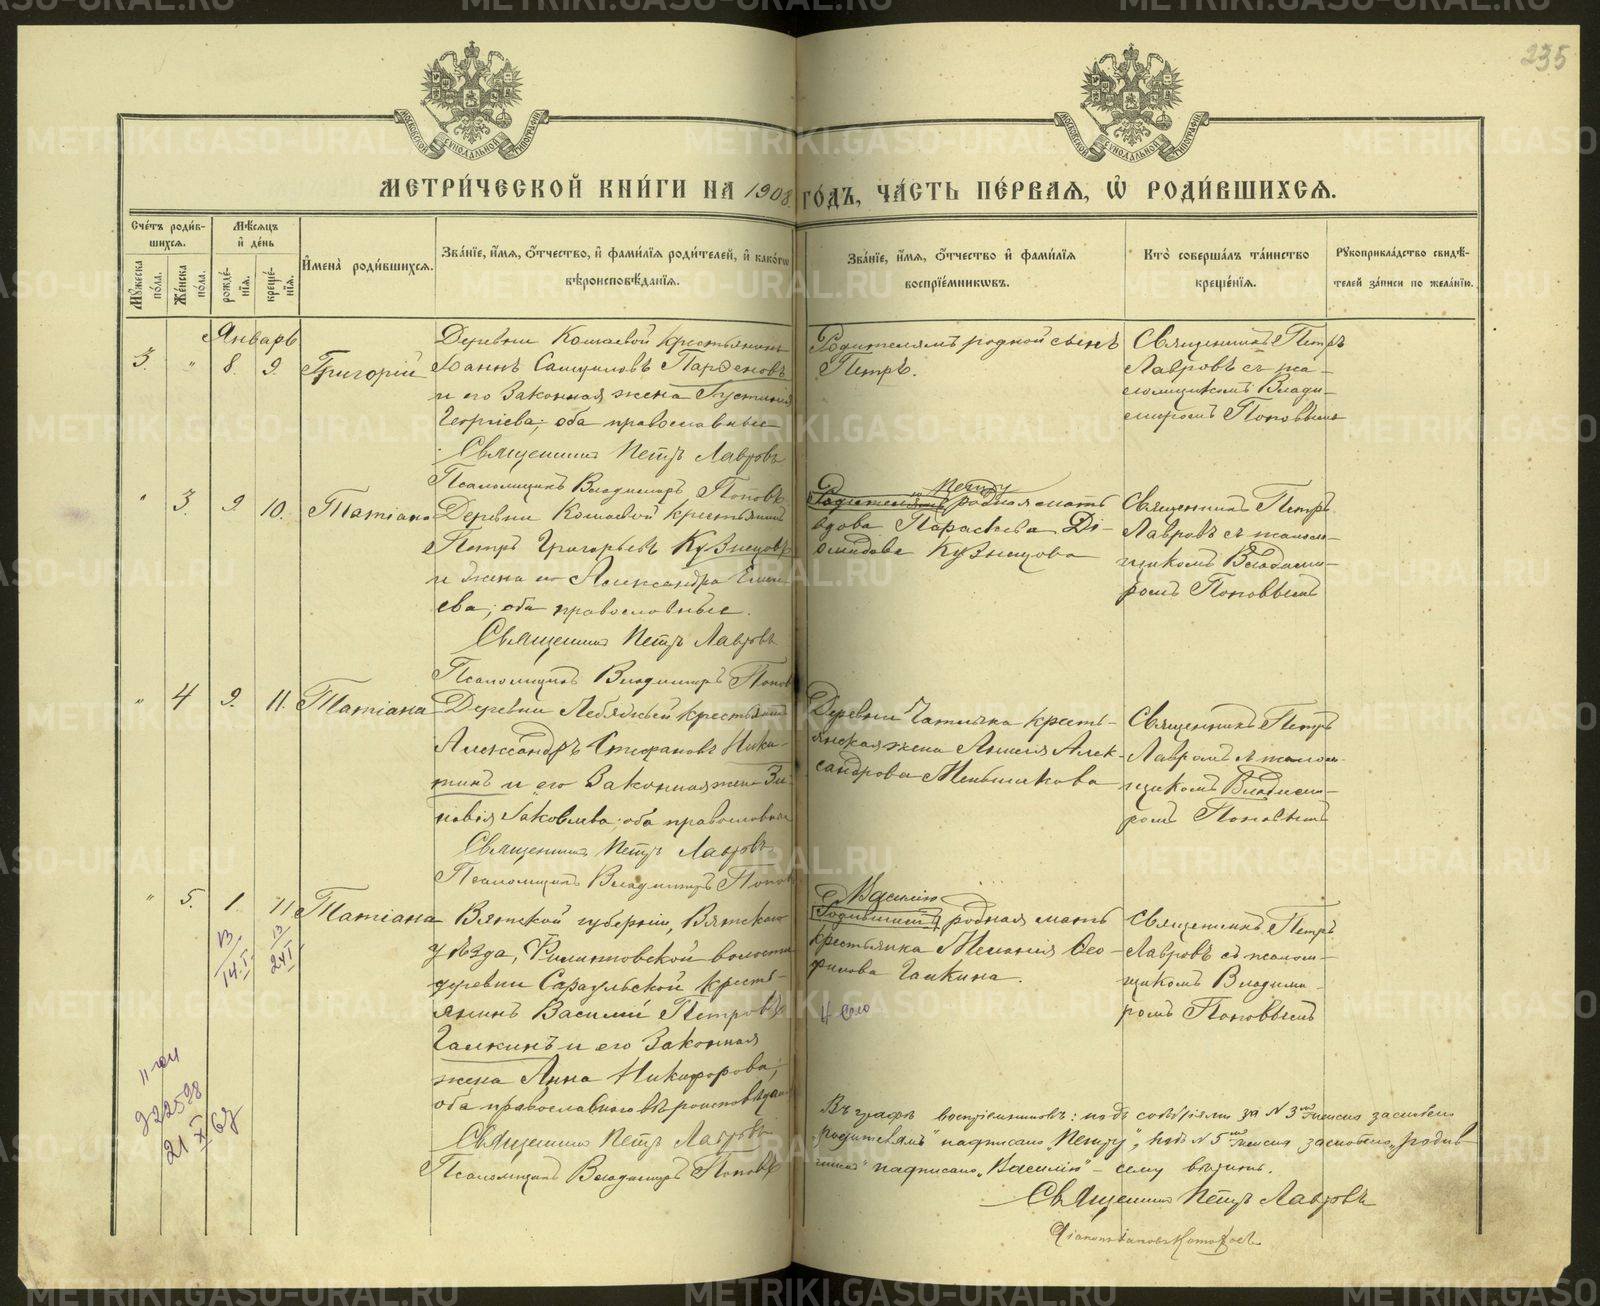 235
МЕТРИ́ЧЕСКОЙ КНИ́ГИ НА 1908 ГО́ДЪ, ЧА́СТЬ ПЕ́РВАЯ, Ѡ РОДИ́ВШИХСЯ.
Сче́тъ роди́в-
шихся.
Му́жеска по́ла.
Же́нска по́ла.
Мѣ́сяцъ
и де́нь
рожде́-
нїя.
креще́-
нїя.
Имена̀ роди́вшихся.
Зва́нїе, и́мя, о́тчество, и фами́лїя роди́телей, и како́гѡ
вѣроисповѣ́данїя.
Зва́нїе, и́мя, о́тчество и фами́лїя
воспрїе́мникѡвъ.
Кто̀ соверша́лъ та́инство
креще́нїя.
Рꙋкоприкла́дство свидѣ́-
телей за́писи по жела́нїю.
Январь
3. " 8. 9. Григорій
Деревни Комаевой крестьянинъ
Іоаннъ Самуиловъ Парѳеновъ
и его законная жена Іустинія
Георгіева; оба православные
Священникъ Петръ Лавровъ
Псаломщикъ Владимиръ Поповъ
Родителямъ родной сынъ
Петръ.
Священникъ Петръ
Лавровъ съ пса-
ломщикомъ Влади-
миромъ Поповымъ
" 3. 9. 10. Татіана
Деревни Комаевой крестьянинъ
Петръ Григорьевъ Кузнецовъ
и жена его Александра
ева; оба православные.
Священникъ Петръ Лавровъ
Псаломщикъ Владимиръ Попов
Петру
родная мать
вдова Параскева Ді-
омидова Кузнецова
Священникъ Петръ
Лавровъ съ псалом-
щикомъ Владими-
ромъ Поповымъ
" 4 9. 11. Татіана
Деревни Лебяжьей крестьянинъ
Александръ Стефановъ Ники-
тинъ и его законная жена Зи-
новія Іаковлева; оба православные
Священникъ Петръ Лавровъ
Псаломщикъ Владимиръ Попов
Деревни крестъ-
янская жена Анисія Алек-
сандрова Меньшикова
Священникъ Петръ
Лавровъ съ псалом-
щикомъ Владими-
ромъ Поповымъ
" 5. 1. 11 Татіана
Вятской губерніи, Вятскаго
уѣзда, Филипповской волости
деревни Сараульской кресть-
янинъ Василій Петровъ
Галкинъ и его законная
жена Анна Никифорова;
оба православнаго вѣроисповѣданія
Священникъ Петръ Лавровъ
Псаломщикъ Владимиръ Поповъ
Василію
родная мать
крестьянка Меланія Ѳео-
филова Галкина.
Священникъ Петръ
Лавровъ съ псалом-
щикомъ Владими-
ромъ Поповымъ
13/14.I.
13/24 I
922598
21 X 67
Въ графѣ воспріемниковъ: подъ за N 3
"родителямъ" надписано "Петру", подъ N 5 "родив-
надписано "Василію" – сему вѣрить.
Священникъ Петръ Лавровъ